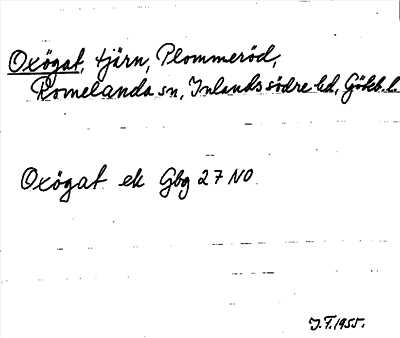 Oxögat, tjärn, Plommeröd,
Romelanda sn, Inlands södre hd, Göteb. l.
Oxögat ek Gbg 27 NO
J. F. 1955.